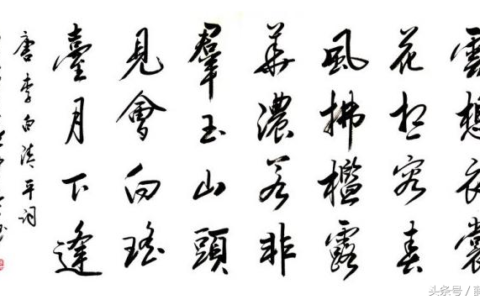 雲想衣裳
花想容春
風拂檻露
華濃若非
羣玉山頭
見會向瑤
臺月下逢
唐李白清平詞
头条号 /